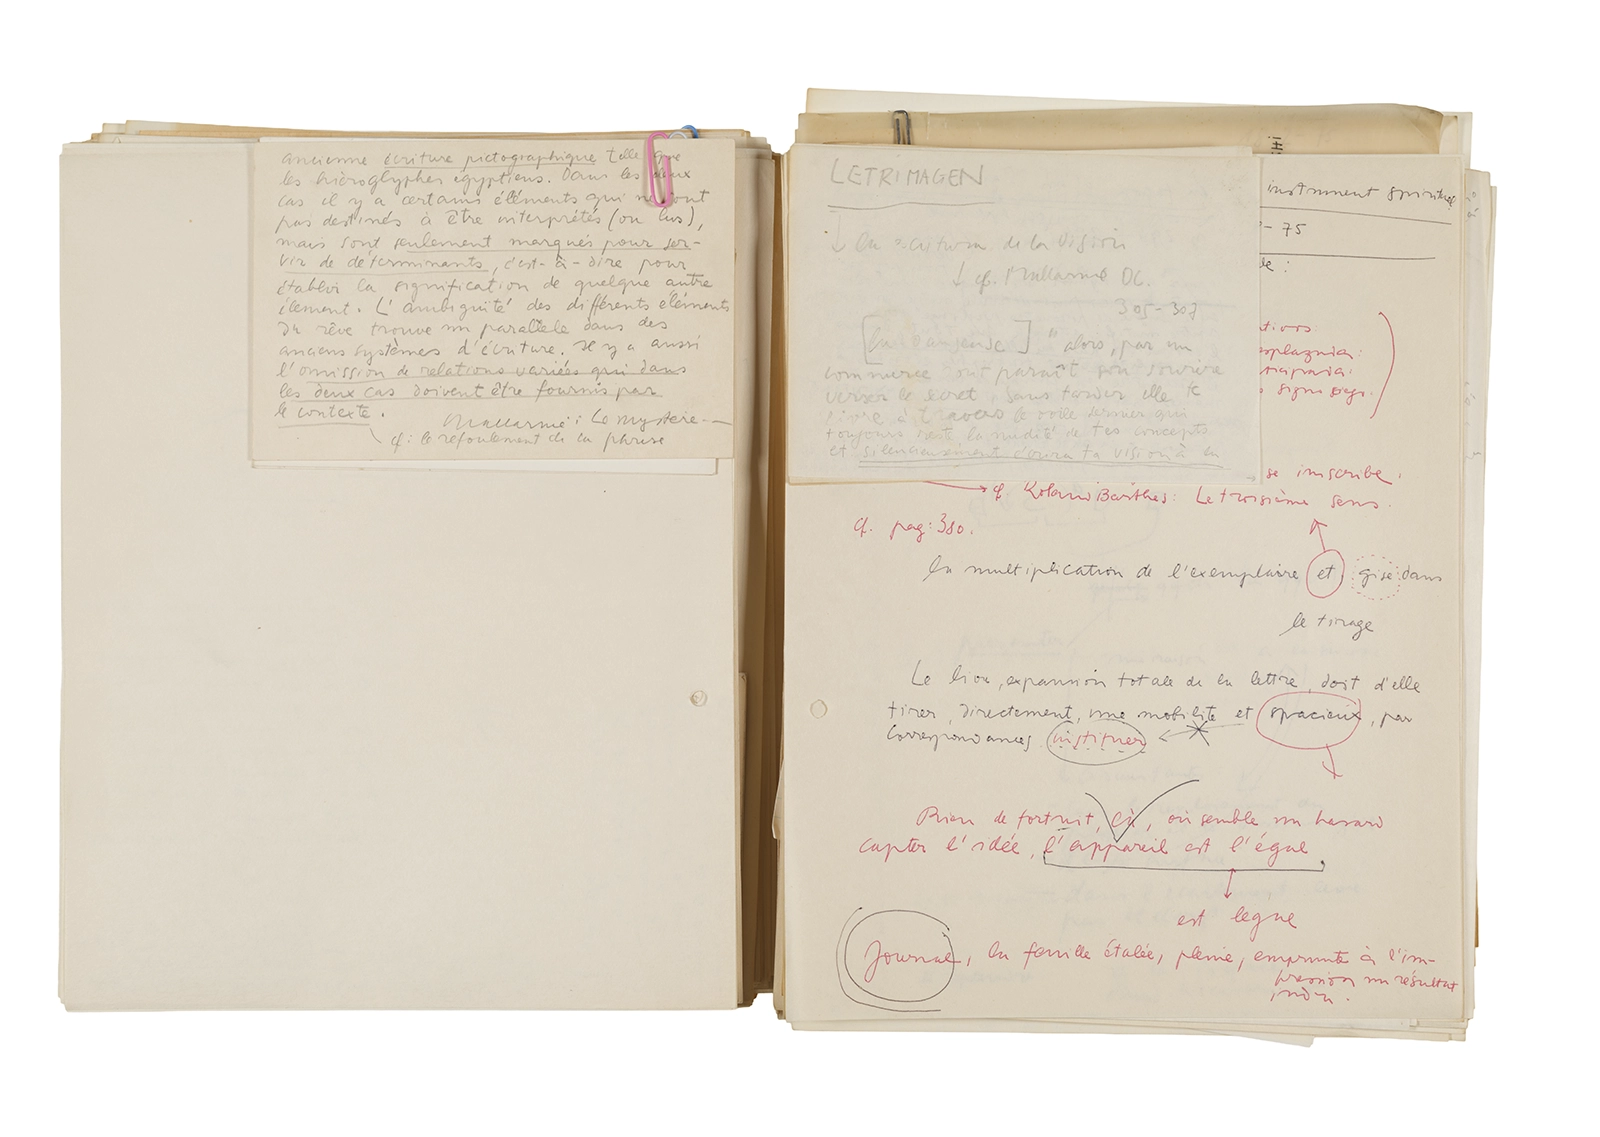 ancienne écriture pictographique telle que
les hiéroglyphes égyptiens. Dans les deux
cas il y a certains éléments qui ne sont
pas destinés à être interprétés (ou lus),
mais sont seulement marqués pour ser-
vir de déterminants, c'est-à-dire pour
établir la signification de quelque autre
élement. L'ambiguité des différents éléments
du rêve trouve un parallèle dans des
anciens systèmes d'écriture. Il y a aussi
l'omission de relations variées qui dans
les deux cas doivent être fournis par
le contexte.
Mallarmé: Le mystère
cf: le refoulement de la phrase
LETRIMAGEN
La escritura de la Visión
cf. Mallarmé OC.
305-307
[la danseuse] "alors, par un
commerce dont paraît son sourire
verser le secret, sans tarder elle te
livre à travers le voile dernier qui
toujours reste, la nudité de tes concepts
et silencieusement écrira ta vision à la
instrument spirituel
- 75
se inscribe.
cf. Roland Barthes: Le troisième sens.
cf. pag: 380.
la multiplication de l'exemplaire et gise dans
le tirage
Le livre, expansion totale de la lettre, doit d'elle
tirer, directement, une mobilité et spacieux, par
correspondances instituer
Rien de fortuit, là, où semble un hasard
capter l'idée, l'appareil est l'égal
est legue
Journal, la feuille étalée, pleine, emprunte à l'im-
pression un résultat
indu.